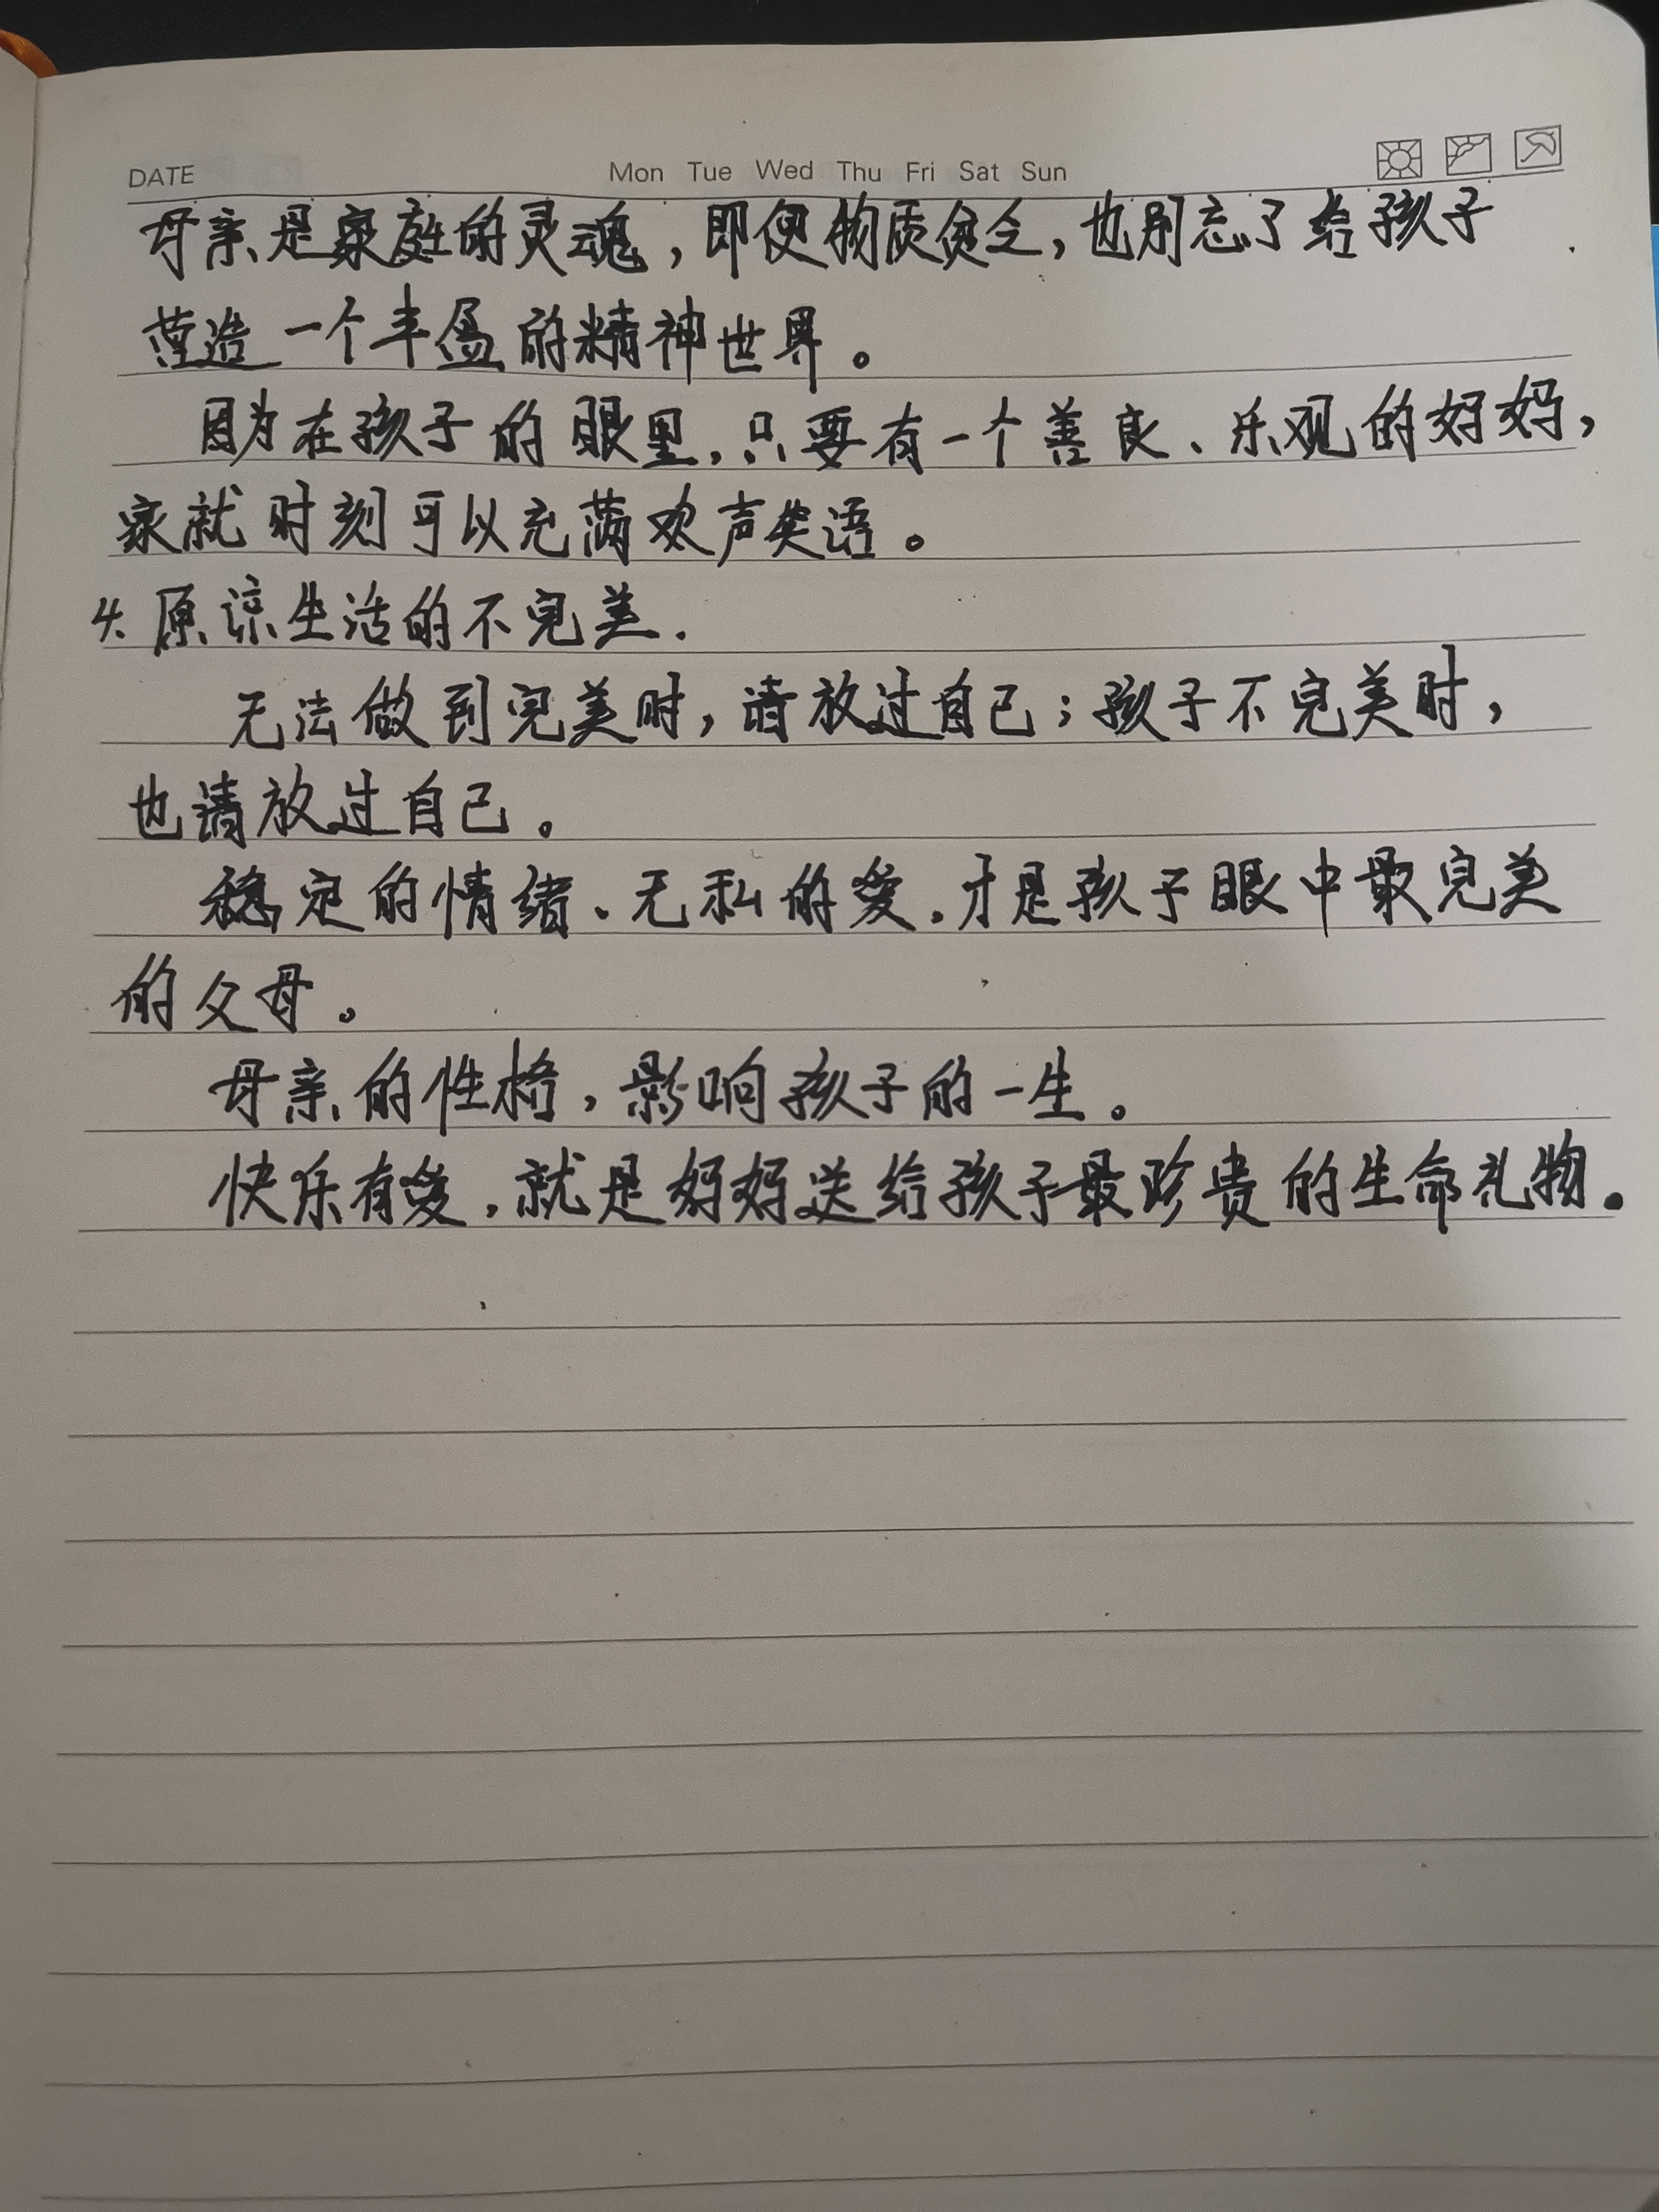 DATE Mon Tue Wed Thu Fri Sat Sun
母亲是家庭的灵魂，即便物质贫乏，也别忘了给孩子
营造一个丰盈的精神世界。
因为在孩子的眼里，只要有一个善良、乐观的妈妈，
家就时刻可以充满欢声笑语。
4. 原谅生活的不完美.
无法做到完美时，请放过自己；孩子不完美时，
也请放过自己。
稳定的情绪、无私的爱，才是孩子眼中最完美
的父母。
母亲的性格，影响孩子的一生。
快乐有爱，就是妈妈送给孩子最珍贵的生命礼物。